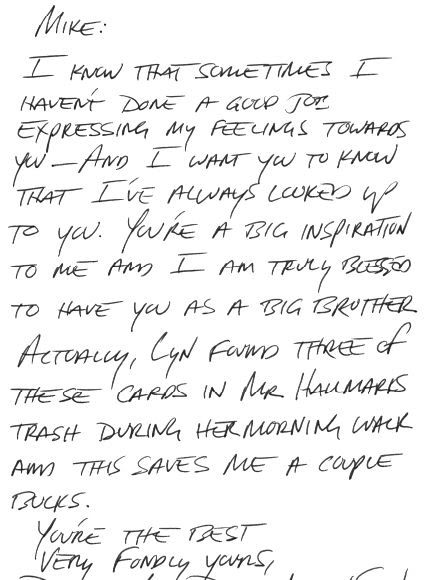 MIKE:
I KNOW THAT SOMETIMES I
HAVEN'T DONE A GOOD JOB
EXPRESSING MY FEELINGS TOWARDS
YOU — AND I WANT YOU TO KNOW
THAT I'VE ALWAYS LOOKED UP
TO YOU. YOU'RE A BIG INSPIRATION
TO ME AND I AM TRULY BLESSED
TO HAVE YOU AS A BIG BROTHER
ACTUALLY, LYN FOUND THREE OF
THESE CARDS IN MR HALLMARKS
TRASH DURING HER MORNING WALK
AND THIS SAVES ME A COUPLE
BUCKS.
YOU'RE THE BEST
VERY FONDLY YOURS,